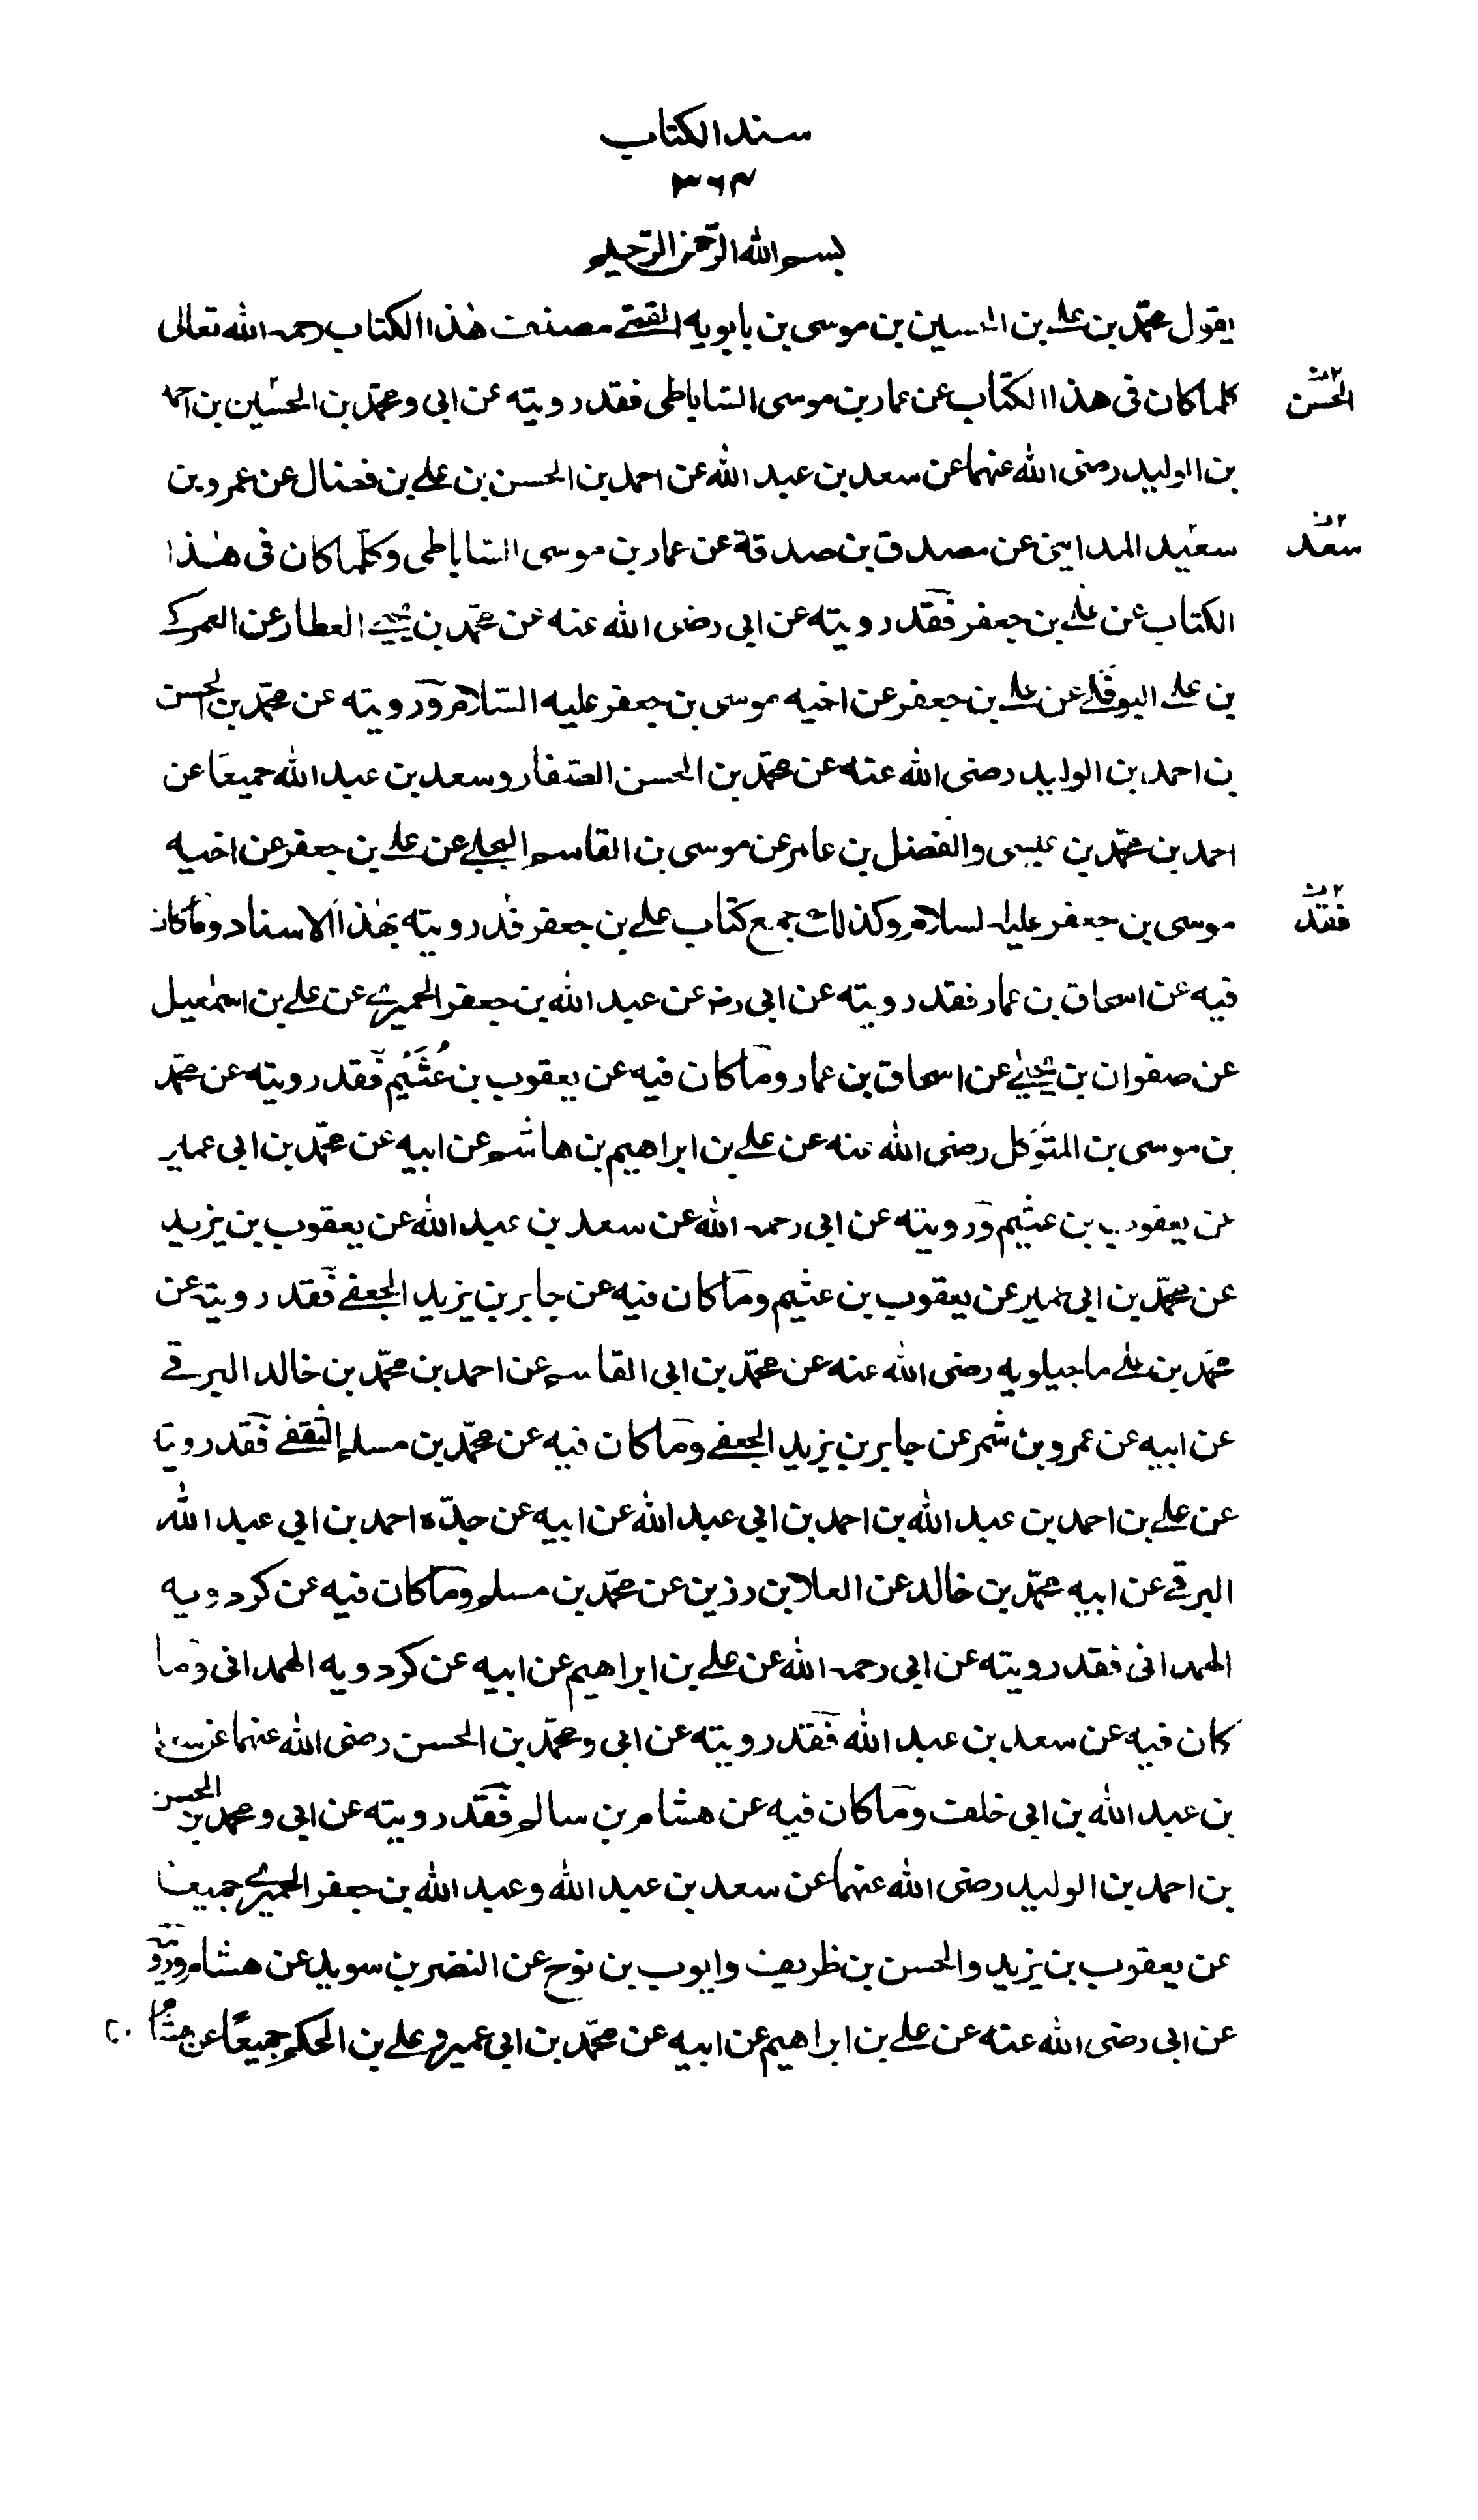 سند الكتاب
۳۶۴
بسم الله الرّحمن الرّحيم
يقول محمّد بن علي بن الحسين بن موسى بن بابويه القمّي مصنف هٰذا الكتاب رحمه الله تعالى
كلما كان فى هذا الكتاب عن عمار بن موسى السّاباطى فقد رويته عن ابى و محمّد بن الحسين بن احمد
الحسن
بن الوليد رضى الله عنهما عن سعد بن عبد الله عن احمد بن الحسن بن علي بن فضال عن عمرو بن
سعيد المداينى عن مصدق بن صدقة عن عمار بن موسى السّاباطى وكلّما كان فى هٰذا
سعد
الكتاب عن علي بن جعفر فقد رويته عن ابى رضى الله عنه عن محمّد بن يحيى العطار عن العمركي
بن علي البوفكي عن علي بن جعفر عن اخيه موسى بن جعفر عليه السّلام ورويته عن محمّد بن الحسن
بن احمد بن الوليد رضى الله عنه عن محمّد بن الحسن الصّفار وسعد بن عبد الله جميعًا عن
احمد بن محمّد بن عيسى والفضل بن عامر عن موسى بن القاسم البجلي عن علي بن جعفر عن اخيه
موسى بن جعفر عليه السلام وكذلك جميع كتاب علي بن جعفر قد رويته بهٰذا الاسناد وما كان
فقد
فيه عن اسحاق بن عمار فقد رويته عن ابى رضه عن عبد الله بن جعفر الحميري عن علي بن اسمٰعيل
عن صفوان بن يحيٰي عن اسحاق بن عمار وما كان فيه عن يعقوب بن عُثَيْم فقد رويته عن محمّد
بن موسى بن المتوَكل رضى الله عنه عن علي بن ابراهيم بن هاشم عن ابيه عن محمّد بن ابى عمير
عن يعقوب بن عثيم ورويته عن ابى رحمه الله عن سعد بن عبد الله عن يعقوب بن يزيد
عن محمّد بن ابى عمير عن يعقوب بن عثيم وما كان فيه عن جابر بن يزيد الجعفي فقد رويته عن
محمّد بن علي ماجيلويه رضى الله عنه عن محمّد بن ابى القاسم عن احمد بن محمّد بن خالد البرقي
عن ابيه عن عمرو بن شمر عن جابر بن يزيد الجعفي وما كان فيه عن محمّد بن مسلم الثقفي فقد رويته
عن علي بن احمد بن عبد الله بن احمد بن ابي عبد الله عن ابيه عن جدّه احمد بن ابي عبد الله
البرقي عن ابيه محمّد بن خالد عن العلا بن رزين عن محمّد بن مسلم وما كان فيه عن كردويه
الهمدانى فقد رويته عن ابى رحمه الله عن علي بن ابراهيم عن ابيه عن كردويه الهمدانى وما
كان فيه عن سعد بن عبد الله فقد رويته عن ابى و محمّد بن الحسن رضى الله عنهما عن سعد
بن عبد الله بن ابى خلف وما كان فيه عن هشام بن سالم فقد رويته عن ابى و محمد بن الحسن
بن احمد بن الوليد رضى الله عنهما عن سعد بن عبد الله وعبد الله بن جعفر الحميري جميعا
عن يعقوب بن يزيد والحسن بن ظريف وايوب بن نوح عن النضر بن سويد عن هشام ورويته
عن ابى رضى الله عنه عن علي بن ابراهيم عن ابيه عن محمّد بن ابى عمير و علي بن الحكم جميعًا عن هشام